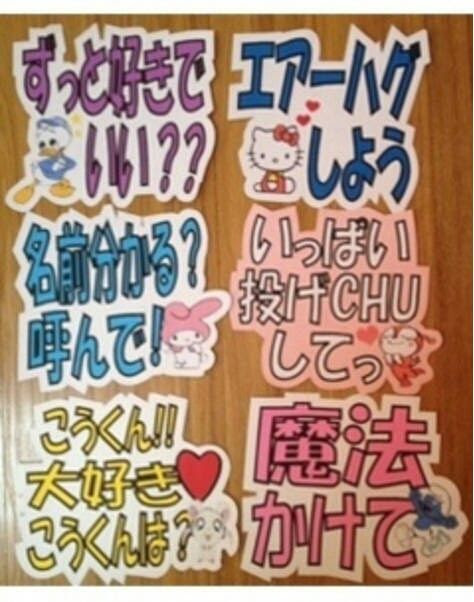 ずっと好きで
いい??
エアーハグ
しよう
名前分かる?
呼んで!
いっぱい
投げCHU
してっ
こうくん!!
大好き♥
こうくんは?
魔法
かけて